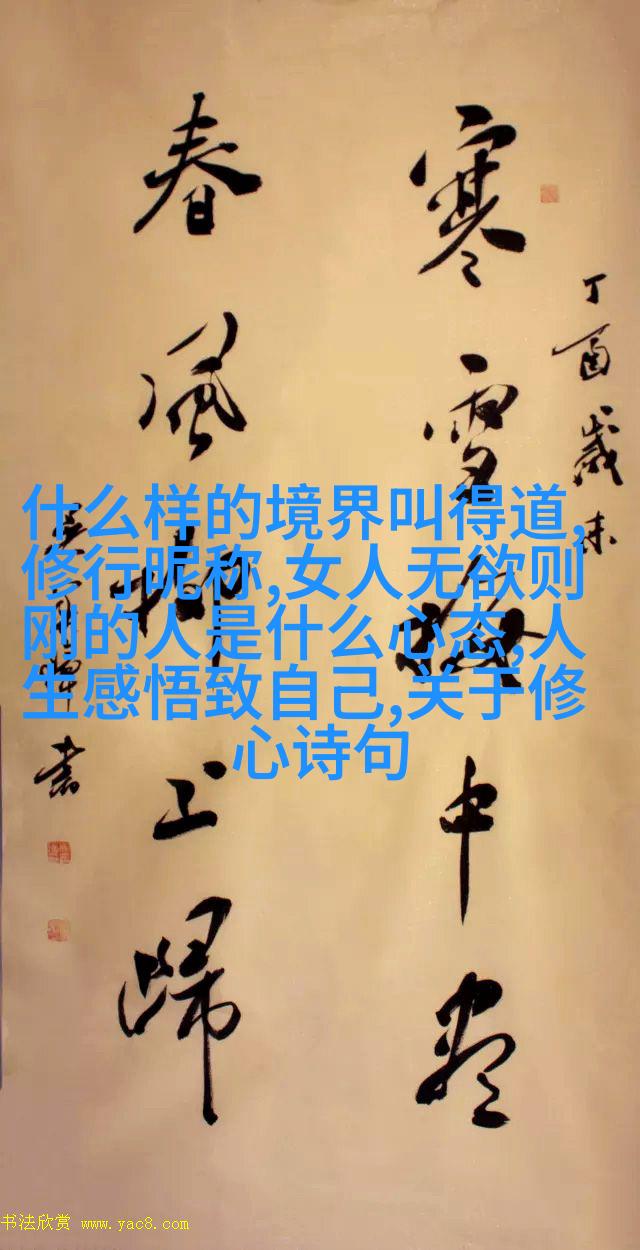 丁酉岁末
寒雪梅中尽
春风柳上归
书
什么样的境界叫得道,
修行昵称,女人无欲则
刚的人是什么心态,人
生感悟致自己,关于修
心诗句
书法欣赏 www.yac8.com